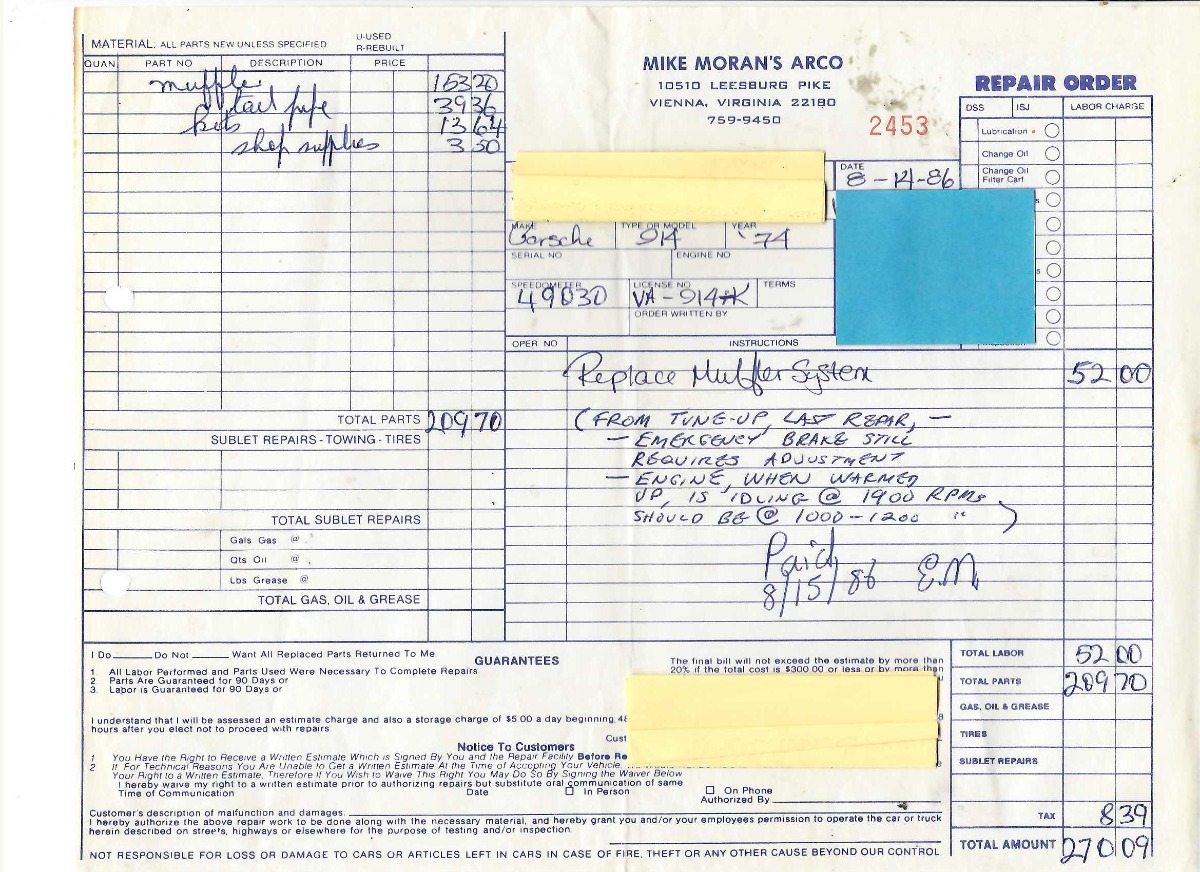 MATERIAL: ALL PARTS NEW UNLESS SPECIFIED
U-USED
R-REBUILT
QUAN. PART NO DESCRIPTION PRICE
muffler 153 20
tail pipe 39 36
kits 13 64
shop supplies 3 50
TOTAL PARTS 209 70
SUBLET REPAIRS - TOWING - TIRES
TOTAL SUBLET REPAIRS
Gals Gas @
Qts Oil @
Lbs Grease @
TOTAL GAS, OIL & GREASE
MIKE MORAN'S ARCO
10510 LEESBURG PIKE
VIENNA, VIRGINIA 22180
759-9450
2453
REPAIR ORDER
DSS ISJ LABOR CHARGE
Lubrication
Change Oil
Change Oil
Filter Cart
DATE
8-14-86
MAKE TYPE OR MODEL YEAR
Porsche 914 '74
SERIAL NO ENGINE NO
SPEEDOMETER LICENSE NO TERMS
49030 VA-914-K
ORDER WRITTEN BY
OPER NO INSTRUCTIONS
Replace Muffler System 52 00
(FROM TUNE-UP, LAST REPAIR, —
— EMERGENCY BRAKE STILL
REQUIRES ADJUSTMENT
— ENGINE, WHEN WARMED
UP, IS IDLING @ 1900 RPMs
SHOULD BE @ 1000-1200 " )
Paid
8/15/86 E.M.
I Do Do Not Want All Replaced Parts Returned To Me
GUARANTEES
1 All Labor Performed and Parts Used Were Necessary To Complete Repairs
2 Parts Are Guaranteed for 90 Days or
3. Labor is Guaranteed for 90 Days or
The final bill will not exceed the estimate by more than
20% if the total cost is $300.00 or less or by more than
I understand that I will be assessed an estimate charge and also a storage charge of $5.00 a day beginning 48
hours after you elect not to proceed with repairs
Cust
Notice To Customers
1 You Have the Right to Receive a Written Estimate Which is Signed By You and the Repair Facility Before Re
2 If For Technical Reasons You Are Unable to Get a Written Estimate At the Time of Accepting Your Vehicle,
Your Right to a Written Estimate, Therefore If You Wish to Waive This Right You May Do So By Signing the Waiver Below
I hereby waive my right to a written estimate prior to authorizing repairs but substitute oral communication of same
Time of Communication Date ☐ In Person ☐ On Phone
Authorized By
Customer's description of malfunction and damages:
I hereby authorize the above repair work to be done along with the necessary material, and hereby grant you and/or your employees permission to operate the car or truck
herein described on streets, highways or elsewhere for the purpose of testing and/or inspection.
NOT RESPONSIBLE FOR LOSS OR DAMAGE TO CARS OR ARTICLES LEFT IN CARS IN CASE OF FIRE, THEFT OR ANY OTHER CAUSE BEYOND OUR CONTROL
TOTAL LABOR 52 00
TOTAL PARTS 209 70
GAS, OIL & GREASE
TIRES
SUBLET REPAIRS
TAX 8 39
TOTAL AMOUNT 270 09